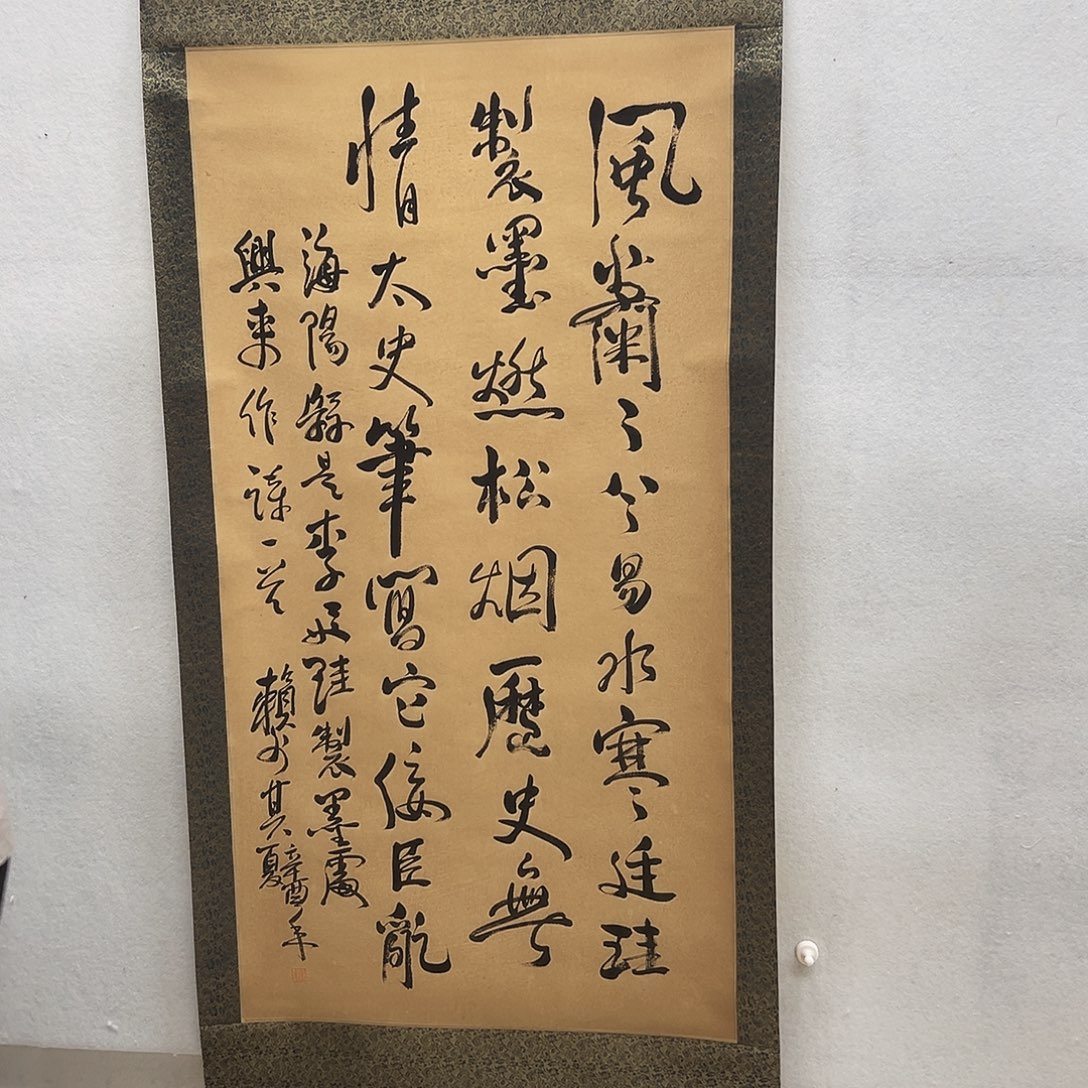 風蕭々兮易水寒廷珪
製墨燃松烟歷史無
情太史筆寫它佞臣亂
海陽縣是李廷珪製墨處
興來作詩一首
賴少其 辛酉年夏